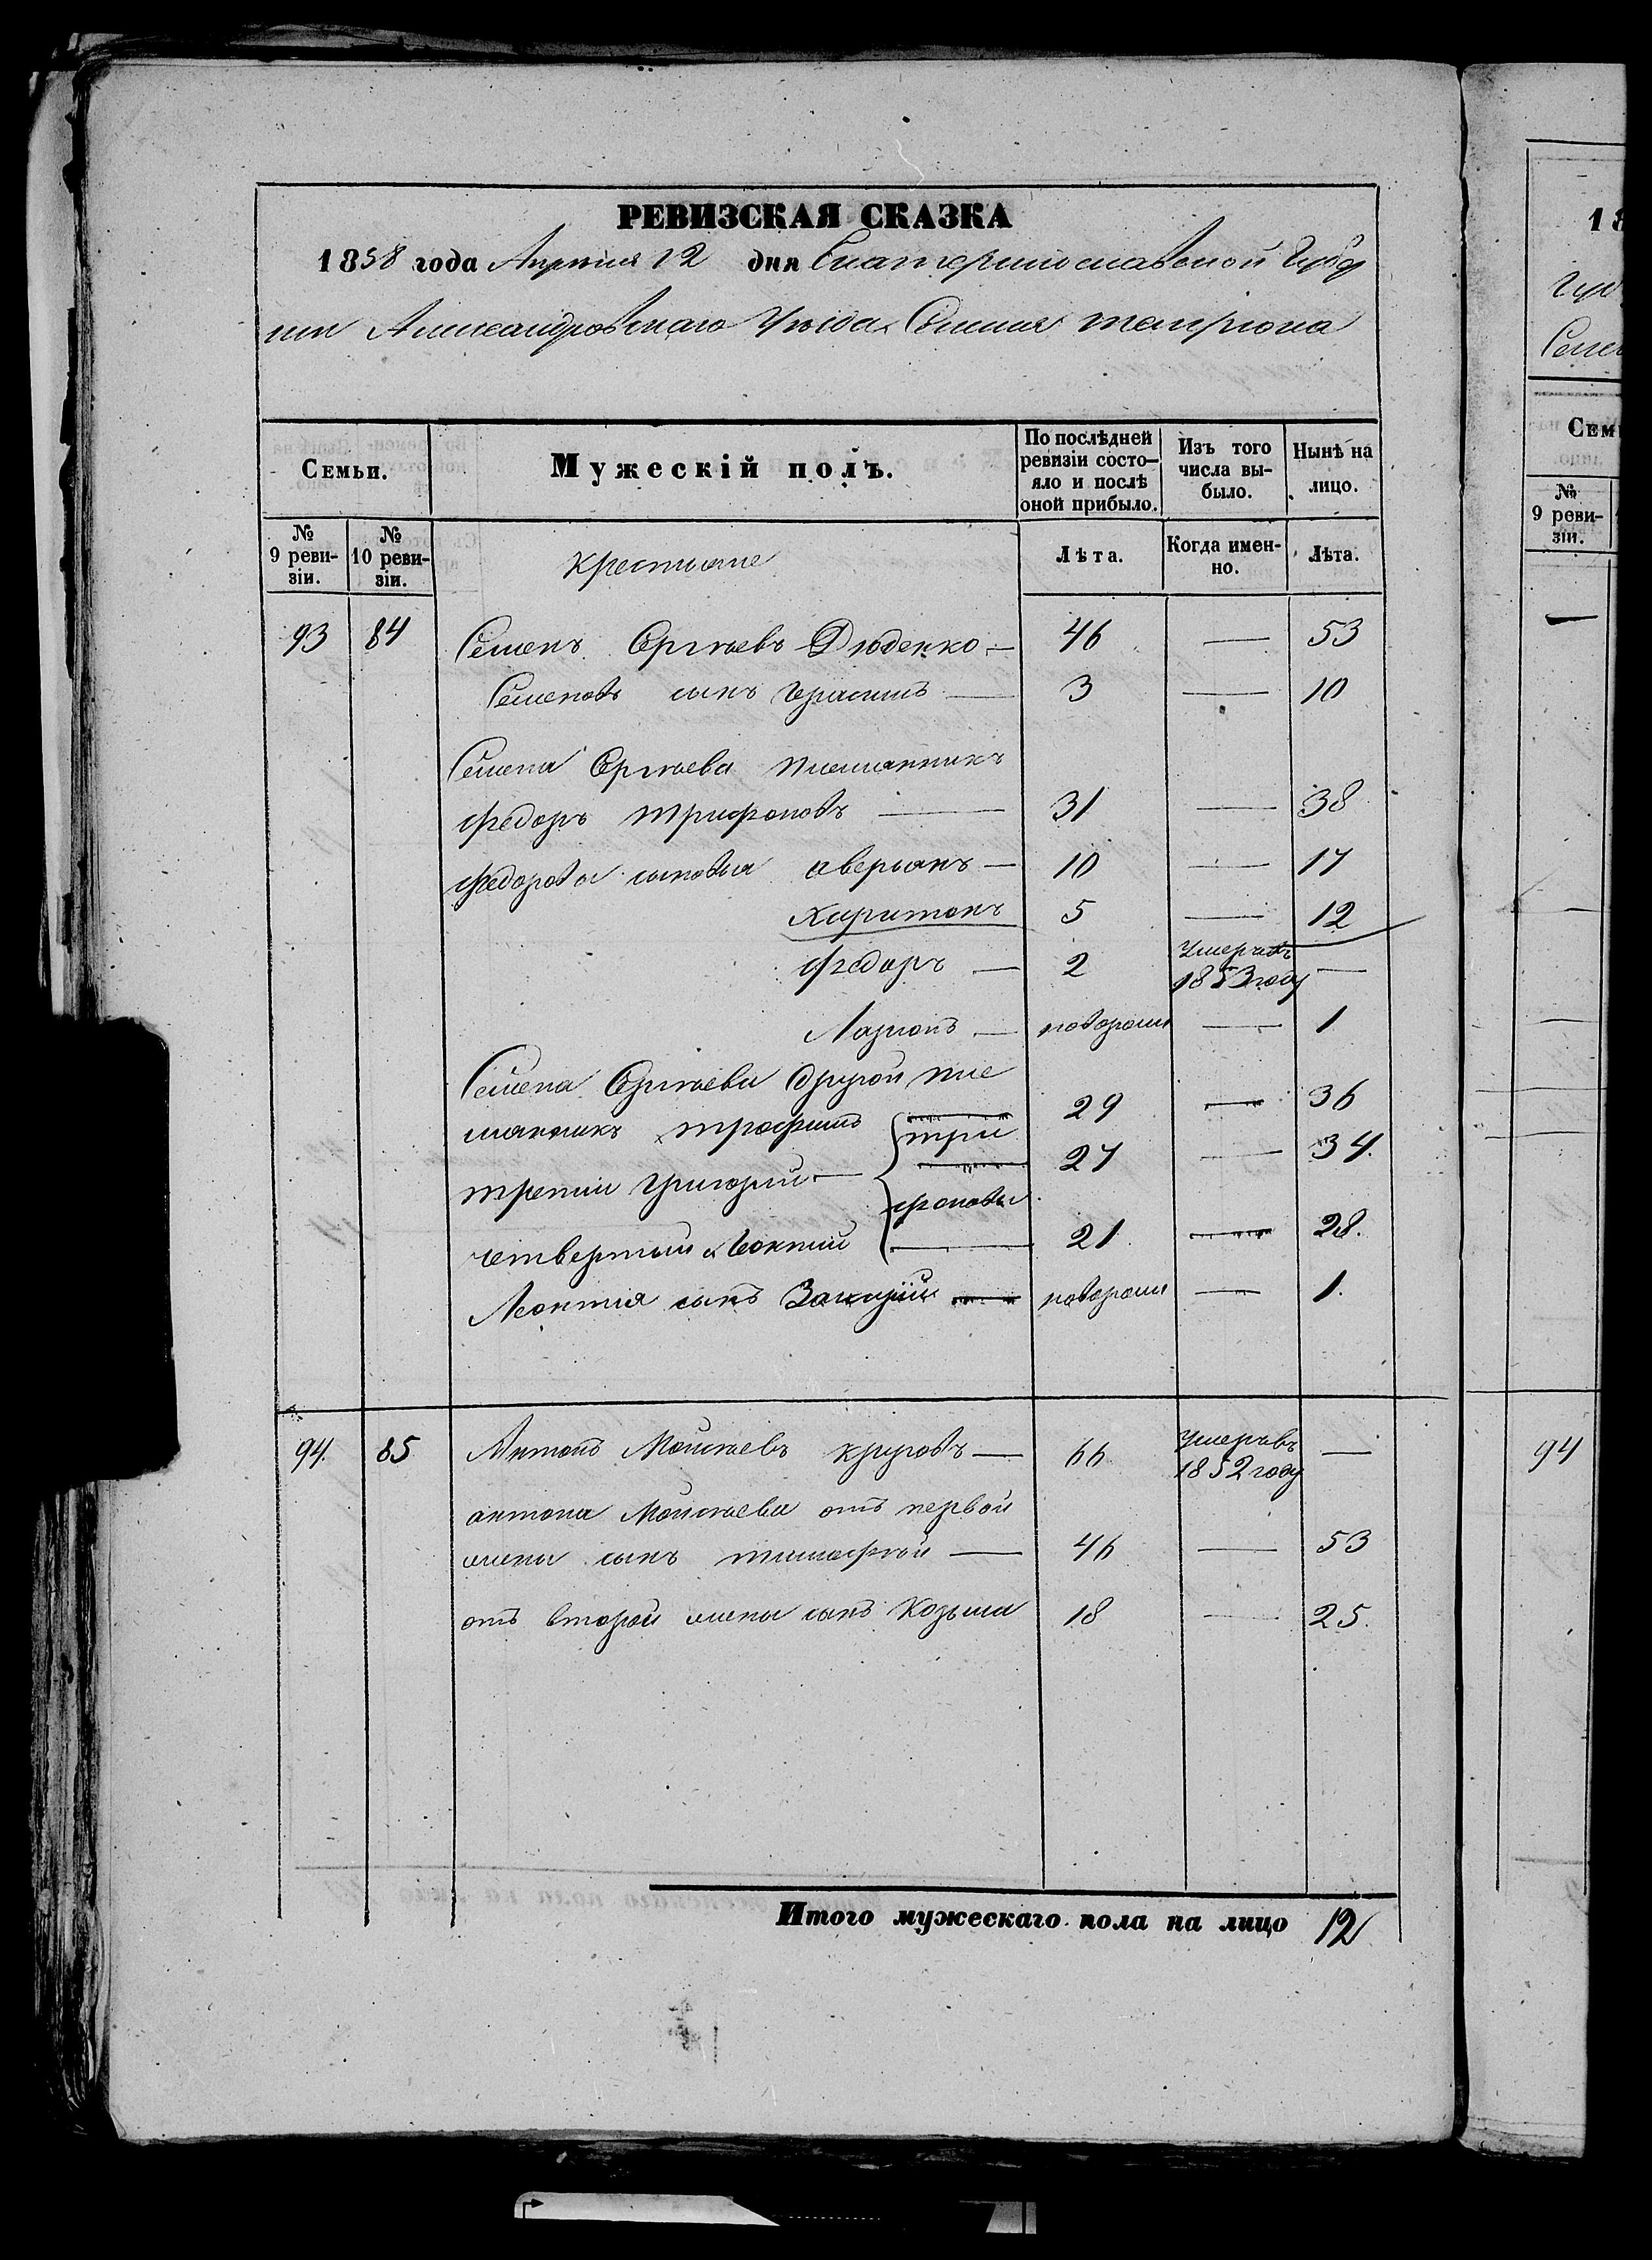 РЕВИЗСКАЯ СКАЗКА
1858 года Апрѣля 12 дня Екатеринославской Губер
ніи Александровскаго Уѣзда Селенія темрюка
Семьи.
Мужескій полъ.
По послѣдней ревизіи состо-
яло и послѣ
оной прибыло.
Изъ того
числа вы-
было.
Нынѣ на
лицо.
№
9 реви-
зіи.
№
10 реви-
зіи.
крестьяне
Лѣта.
Когда имен-
но.
Лѣта.
93 84 Семенъ Сергѣевъ Дюденко — 46 — 53
Семеновъ сынъ Герасимъ — 3 — 10
Семена Сергѣева племянникъ
Федоръ трифоновъ — 31 — 38
Федоровы сыновья аверьянъ — 10 — 17
Харитонъ 5 — 12
Федоръ — 2 Умеръ въ 1853 году —
Ларионъ — новорожд — 1
Семена Сергѣева другой пле
мянникъ трофимъ три 29 — 36
третий Григорий — фоновы 27 — 34.
четвертый Леонтий — 21 — 28.
Леонтия сынъ Захарій — новорожд — 1.
94. 85 Антонъ Мойсѣевъ круговъ — 66 Умеръ въ 1852 году —
антона Мойсѣева отъ первой
жены сынъ тимофѣй — 46 — 53
отъ второй жены сынъ Козьма 18 — 25.
Итого мужескаго пола на лицо 12
18
Семе
Сем
№
9 реви-
зіи.
94